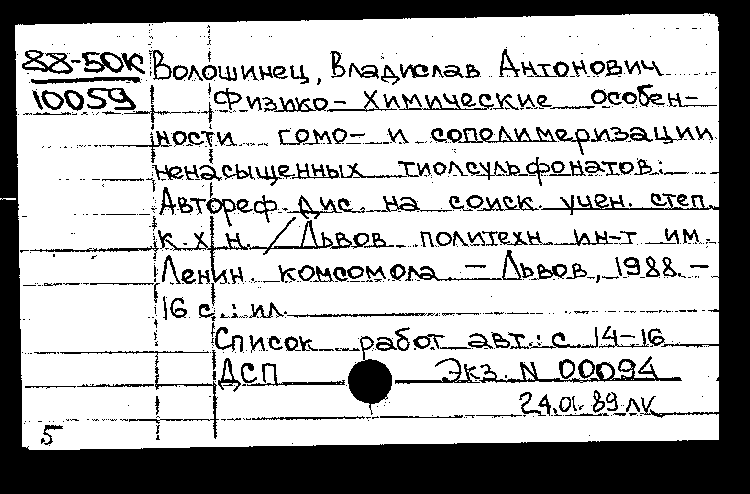 88-50К Волошинец, Владислав Антонович
10059 Физико-химические особен-
ности гомо- и сополимеризации
ненасыщенных тиолсульфонатов:
Автореф. дис. на соиск. учен. степ.
к.х.н. / Львов. политехн. ин-т им.
Ленин. комсомола. - Львов, 1988. -
16 с.: ил.
Список работ авт.: с 14-16
ДСП Экз. N 00094
24.01.89 ЛК
5